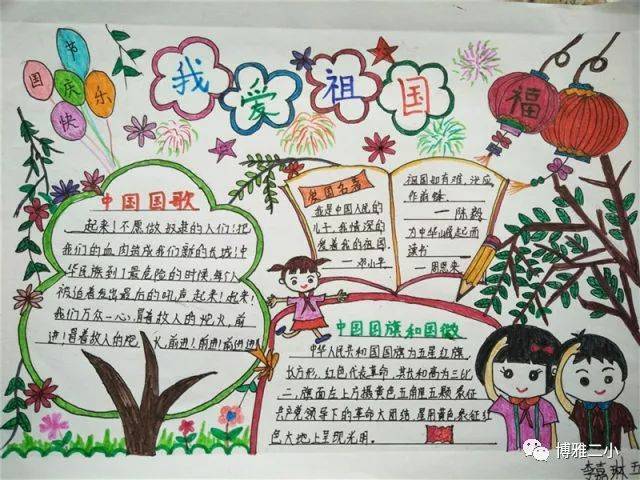 我爱祖国
国庆节快乐
福
中国国歌
起来！不愿做奴隶的人们！把
我们的血肉筑成我们新的长城！中
华民族到了最危险的时候，每个人
被迫着发出最后的吼声。起来！起来！
我们万众一心，冒着敌人的炮火，前
进！冒着敌人的炮火，前进！前进！前进进！
爱国名言
我是中国人民的
儿子，我情深的
爱着我的祖国。
——邓小平
祖国如有难，汝应
作前锋。
——陈毅
为中华崛起而
读书
——周恩来
中国国旗和国徽
中华人民共和国国旗为五星红旗，
长方形，红色代表革命，其长和高为三比
二，旗面左上方摄黄色五角星五颗象征
共产党领导下的革命大团结，星用黄色象征红
色大地上呈现光明。
博雅二小
李嘉琳 五